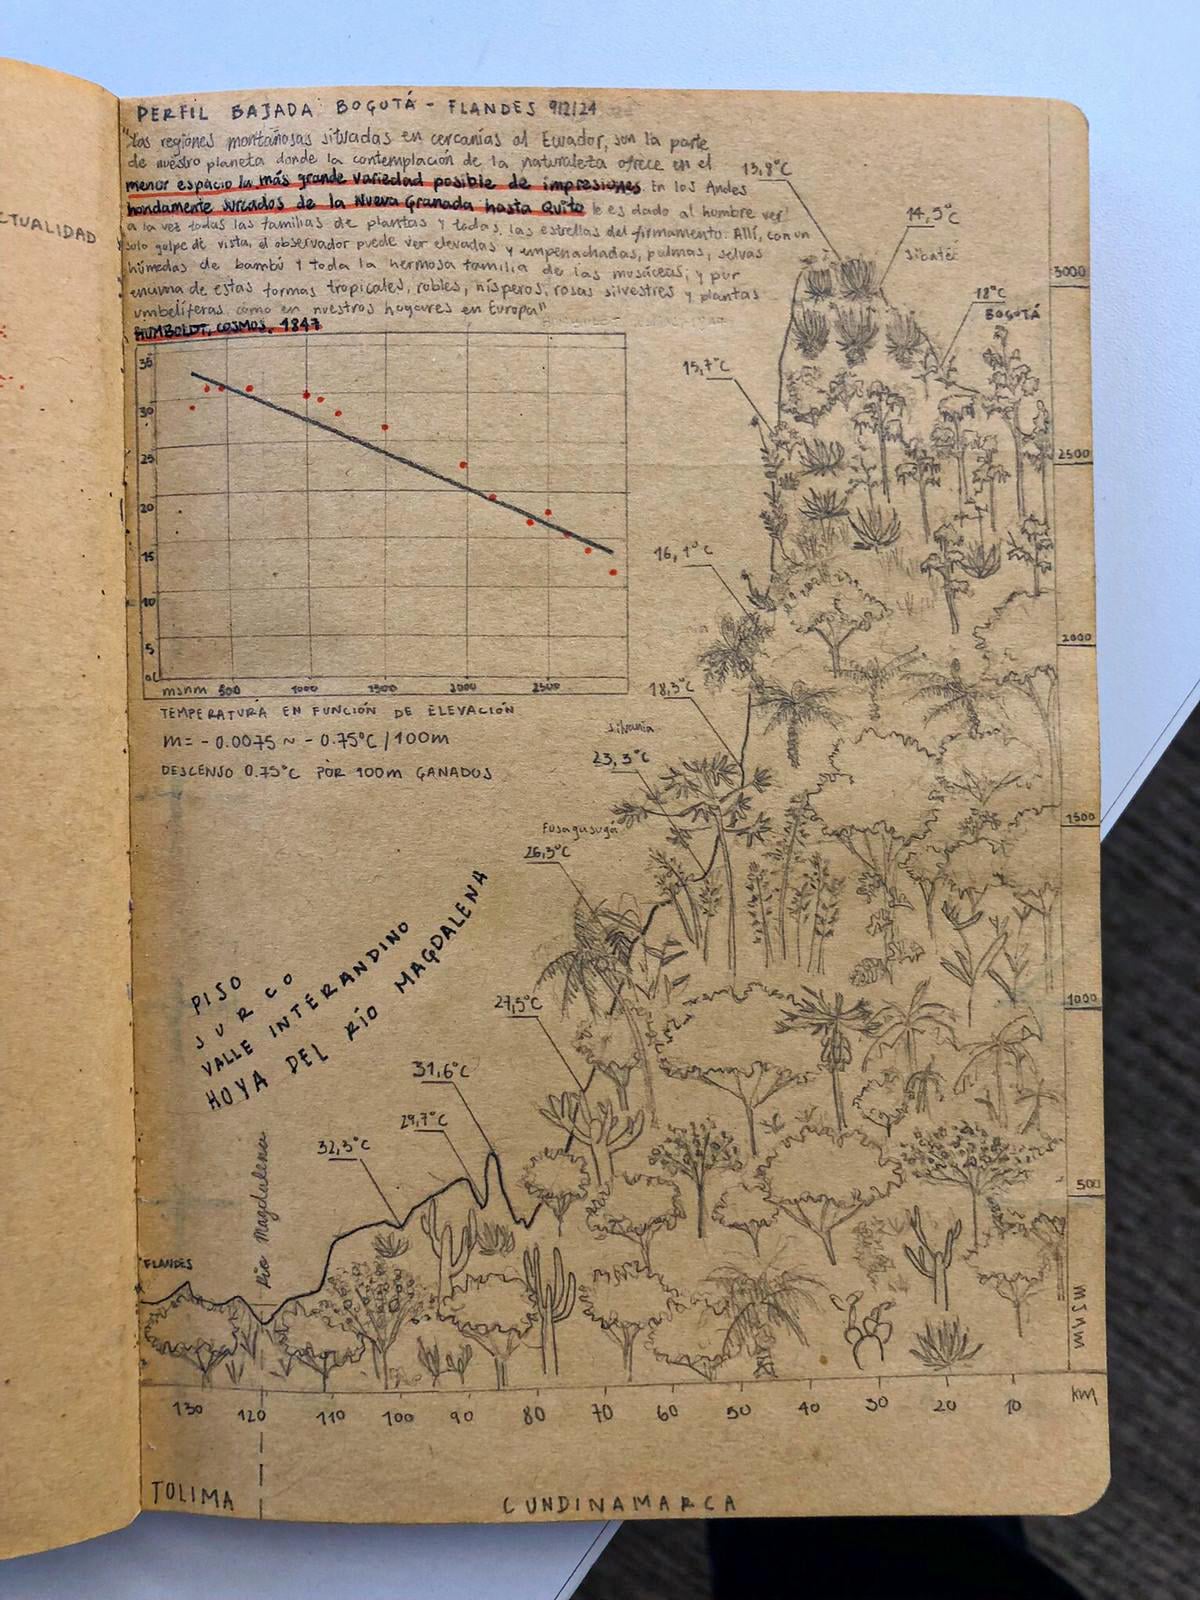 CTUALIDAD
PERFIL BAJADA BOGOTÁ - FLANDES 9/2/24
"Las regiones montañosas situadas en cercanías al Ecuador, son la parte
de nuestro planeta donde la contemplación de la naturaleza ofrece en el
menor espacio la más grande variedad posible de impresiones. En los Andes
hondamente surcados de la Nueva Granada hasta Quito le es dado al hombre ver
a la vez todas las familias de plantas y todas las estrellas del firmamento. Allí, con un
solo golpe de vista, el observador puede ver elevadas y empenachadas, palmas, selvas
húmedas de bambú y toda la hermosa familia de las musáceas, y por
encima de estas formas tropicales, robles, nísperos, rosas silvestres y plantas
umbelíferas como en nuestros hogares en Europa"
HUMBOLDT, COSMOS, 1847
35
30
25
20
15
10
5
0C
msnm 500 1000 1500 2000 2500
TEMPERATURA EN FUNCIÓN DE ELEVACIÓN
m = - 0.0075 ~ - 0.75°C / 100m
DESCENSO 0.75°C POR 100m GANADOS
13,8°C
14,5°C
Sibaté
18°C
BOGOTÁ
15,7°C
16,1°C
18,3°C
Silvania
23,3°C
Fusagasugá
26,3°C
27,5°C
31,6°C
29,7°C
32,3°C
PISO
SURCO
VALLE INTERANDINO
HOYA DEL RÍO MAGDALENA
Río Magdalena
FLANDES
3000
2500
2000
1500
1000
500
MSNM
130 120 110 100 90 80 70 60 50 40 30 20 10 km
TOLIMA CUNDINAMARCA